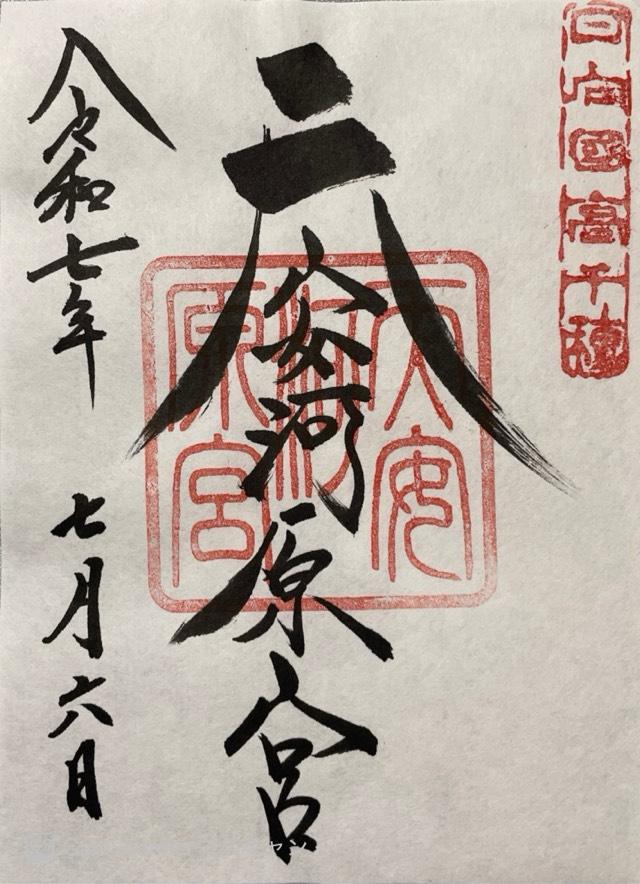 日向國高千穂
天安河原宮
天安
河
原宮
令和七年 七月六日